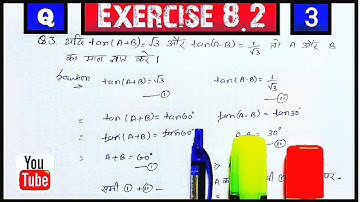 Q EXERCISE 8.2 3
Q.3. यदि tan(A+B)=√3 और tan(A-B)= 1/√3 तो A और B
का मान ज्ञात करें।
Solution tan(A+B)=√3 tan(A-B)= 1/√3
—① —⑪
= tan(A+B) = tan60° = tan(A-B) = tan30°
= tan(A+B) = tan60° A-B = 30°
= A+B = 60° —⑪
—①
You
Tube